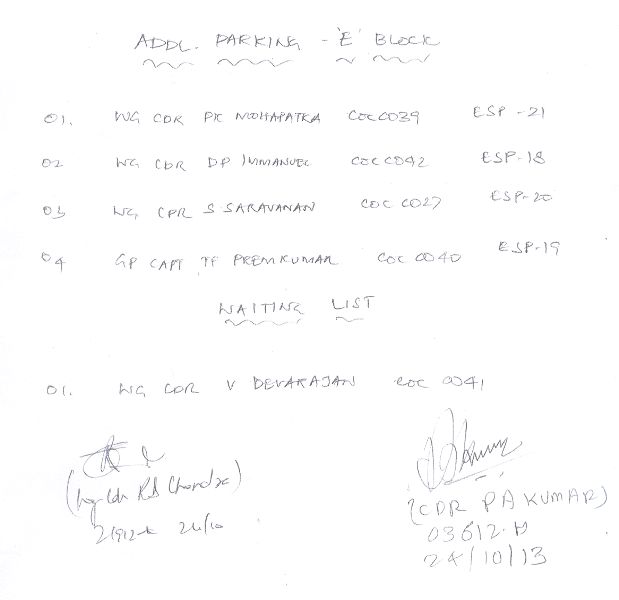 ADDL. PARKING - 'E' BLOCK
01. WG CDR PK MOHAPATRA COC C039 ESP-21
02 WG CDR DP IMMANUEL COC C042 ESP-18
03 WG CDR S SARAVANAN COC C027 ESP-20
04 GP CAPT TF PREMKUMAR COC C040 ESP-19
WAITING LIST
01. WG CDR V DEVARAJAN COC C041
(Wg Cdr Chandra) (CDR PA KUMAR)
24/10 03612-H
24/10/13